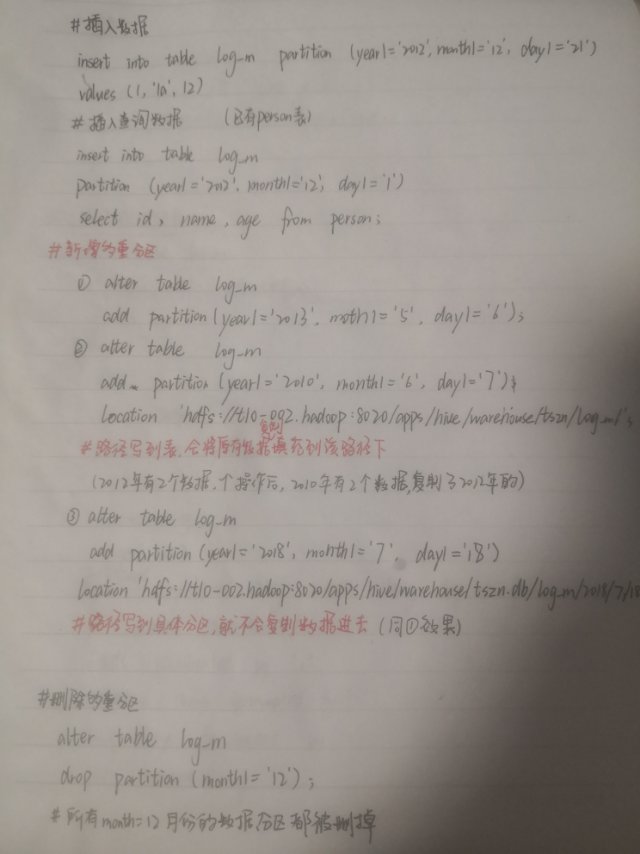 #插入数据
insert into table log_m partition (year1='2012', month1='12', day1='21')
values (1, '1a', 12)
#插入查询数据 (已有person表)
insert into table log_m
partition (year1='2012', month1='12', day1='1')
select id, name, age from person;
#新增的重分区
① alter table log_m
add partition (year1='2013', moth1='5', day1='6');
② alter table log_m
add partition (year1='2010', month1='6', day1='7')
location 'hdfs://t10-002.hadoop:8020/apps/hive/warehouse/tszn/log_m1';
复制
#路径写到表,会将原有数据填充到该路径下
(2012年有2个数据,个操作后,2010年有2个数据,复制了2012年的)
③ alter table log_m
add partition (year1='2018', month1='7', day1='18')
location 'hdfs://t10-002.hadoop:8020/apps/hive/warehouse/tszn.db/log_m/2018/7/18
#路径写到具体分区,就不会复制数据进去 (同①效果)
#删除的重分区
alter table log_m
drop partition (month1='12');
#所有month=12月份的数据分区都被删掉